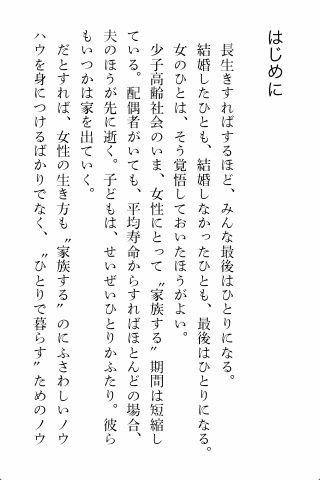 はじめに
長生きすればするほど、みんな最後はひとりになる。
結婚したひとも、結婚しなかったひとも、最後はひとりになる。
女のひとは、そう覚悟しておいたほうがよい。
少子高齢社会のいま、女性にとって〝家族する〟期間は短縮し
ている。配偶者がいても、平均寿命からすればほとんどの場合、
夫のほうが先に逝く。子どもは、せいぜいひとりかふたり。彼ら
もいつかは家を出ていく。
だとすれば、女性の生き方も〝家族する〟のにふさわしいノウ
ハウを身につけるばかりでなく、〝ひとりで暮らす〟ためのノウ